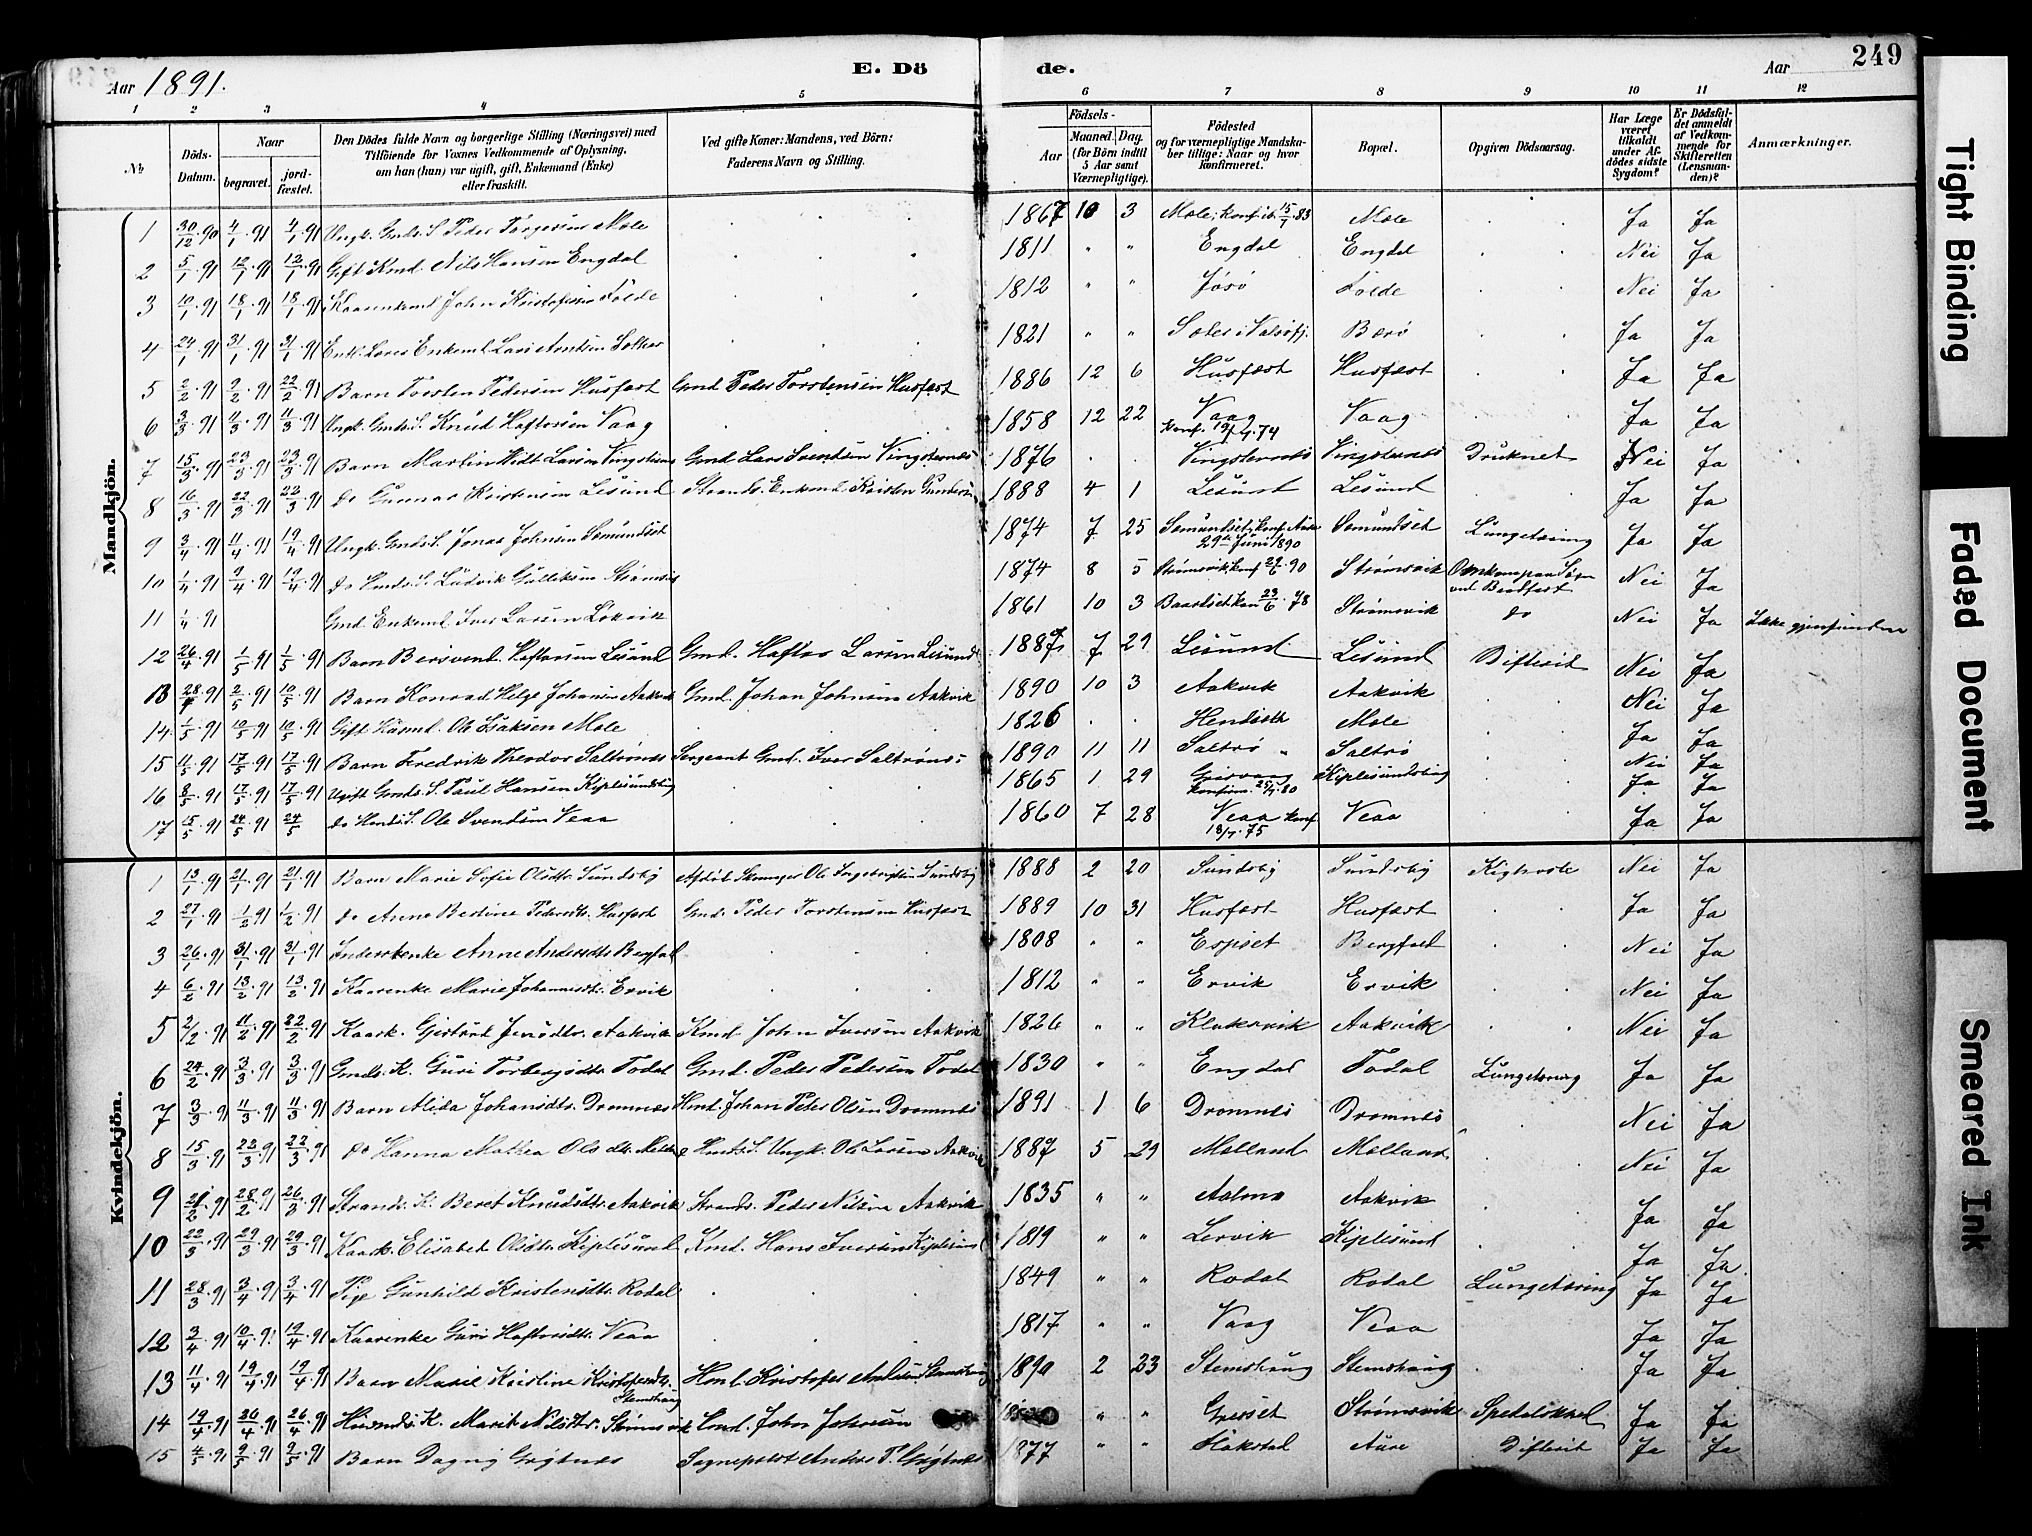 249
Aar 1891.
E. Dö
de.
Aar
1 2 3 4 5 6 7 8 9 10 11 12
No
Döds-Datum.
Naar
begravet.
jord-fæstet.
Den Dödes fulde Navn og borgerlige Stilling (Næringsvei) med
Tilföiende for Voxnes Vedkommende af Oplysning,
om han (hun) var ugift, gift, Enkemand (Enke)
eller fraskilt.
Ved gifte Koner: Mandens, ved Börn:
Faderens Navn og Stilling.
Födsels-
Aar
Maaned. Dag.
(for Börn indtil
5 Aar samt
Værnepligtige).
Födested
og for værnepligtige Mandska-
ber tillige: Naar og hvor
konfirmeret.
Bopæl.
Opgiven Dödsaarsag.
Har Læge
været
tilkaldt
under Af-
dödes sidste
Sygdom?
Er Dödsfal-
det anmeldt
af Vedkom-
mende for
Skifteretten
(Lensman-
den)?
Anmærkninger.
Mandkjön.
1 30/12.90 4/1.91 4/1.91 Ungk. Gmds. S. Peder Torgersen Mole 1867 10 3 Mole; konf. 15/7.83 Mole Ja Ja
2 5/1.91 12/1.91 12/1.91 Gift Kmd. Nils Hansen Engdal 1811 " " Engdal Engdal Nei Ja
3 10/1.91 18/1.91 18/1.91 Kaarenkemd John Kristofersen Folde 1812 " " Jøsø Folde Nei Ja
4 24/1.91 31/1.91 31/1.91 Enkemd Lars Arntsen 1821 " " Bærø Ja Ja
5 2/2.91 9/2.91 22/2.91 Barn Torsten Pedersen Husfæst Gmd Peder Torstensen Husfæst 1886 12 6 Husfæst Husfæst Ja Ja
6 3/3.91 11/3.91 11/3.91 Ungk. Gmds. S. Knud Haftorsen Vaag 1858 12 22 Vaag Konf. 74 Vaag Ja Ja
7 15/3.91 23/3.91 23/3.91 Barn Martin Larsen Vingsternes Gmd Lars Svendsen Vingsternes 1876 Vingsternes Vingsternes Druknet Nei Ja
8 16/3.91 22/3.91 22/3.91 do Gunnar Kristensen Lesund Strands. Enkemd. Kristen Gundersen 1888 4 1 Lesund Lesund Ja Ja
9 3/4.91 11/4.91 19/4.91 Ungk. Gmds. S. Jonas Johnsen Semundset 1874 7 25 Semundset; konf. Aure 29de Juni 1890 Semundset Lungetæring Ja Ja
10 1/4.91 9/4.91 19/4.91 do Hmds. S. Ludvik Gulliksen Strømsvik 1874 8 5 Strømsvik, konf. .90 Strømsvik Omkom paa Søen ved Baadfart Nei Ja
11 1/4.91 Gmd. Enkemd. Iver Larsen 1861 10 3 Baardset kon 23/6.78 Strømsvik do Nei Ja Ikke gjenfunden
12 26/4.91 1/5.91 1/5.91 Barn Bersvend Haftorsen Lesund Gmd. Haftor Larsen Lesund 1887 7 29 Lesund Lesund Difterit Nei Ja
13 28/4.91 2/5.91 10/5.91 Barn Konrad Helge Johansen Aakvik Gmd. Johan Johnsen Aakvik 1890 10 3 Aakvik Aakvik Nei Ja
14 1/5.91 10/5.91 10/5.91 Gift Husmd. Ole Isaksen Mole 1826 Mole Ja Ja
15 11/5.91 17/5.91 17/5.91 Barn Fredrik Theodor Saltrønes Sergeant Gmd. Iver Saltrønes 1890 11 11 Saltrø Saltrø Nei Ja
16 8/5.91 17/5.91 17/5.91 Ugift Gmds. S. Paul Hansen Kiplesundsbug 1865 1 29 Grisvaag konfirm. 80 Kiplesundsbug Ja Ja
17 15/5.91 24/5.91 24/5 do Hmds. S. Ole Svendsen Veaa 1860 7 28 Veaa konf 18/7.75 Veaa Ja Ja
Kvindekjön.
1 13/1.91 21/1.91 21/1.91 Barn Marie Sofie Olsdtr. Sundsby Afdøb Ole Ingebrigtsen Sundsby 1888 2 20 Sundsby Sundsby Kighoste Nei Ja
2 27/1.91 1/2.91 1/2.91 do Anne Bertine Pedersdtr. Husfæst Gmd. Peder Torstensen Husfæst 1889 10 31 Husfæst Husfæst Ja Ja
3 26/1.91 31/1.91 31/1.91 Inderstenke Anne Andersdtr. Bergfald 1808 " " Espset Bergfald Nei Ja
4 6/2.91 13/2.91 13/2.91 Kaarenke Marie Johannesdtr. Ervik 1812 " " Ervik Ervik Nei Ja
5 2/2.91 11/2.91 22/2.91 Kaark. Gjertrud Jensdtr. Aakvik Kmd. John Iversen Aakvik 1826 " " Klaksvik Aakvik Nei Ja
6 24/2.91 3/3.91 3/3.91 Gmds. K. Guri Torbergsdtr. Todal Gmd. Peder Pedersen Todal 1830 " " Engdal Todal Lungetæring Ja Ja
7 3/3.91 11/3.91 11/3.91 Barn Alida Johansdtr. Dromnes Hmd. Johan Peter Olsen Dromnes 1891 1 6 Dromnes Dromnes Nei Ja
8 15/3.91 22/3.91 22/3.91 do Hanna Mathea Olsdtr. Melland Hmds. S. Ungk. Ole Larsen Aakvik 1887 5 29 Melland Melland Nei Ja
9 21/2.91 28/2.91 26/3.91 Strands. K. Beret Knudsdtr. Aakvik Strands. Peder Nilsen Aakvik 1835 " " Aalmo Aakvik Ja Ja
10 22/3.91 29/3.91 29/3.91 Kaark. Elisabet Olsdtr. Kiplesund Kmd. Hans Iversen Kiplesund 1819 " " Lervik Kiplesund Ja Ja
11 28/3.91 3/4.91 3/4.91 Pige Gunhild Kristensdtr. Rodal 1849 " " Rodal Rodal Lungetæring Ja Ja
12 3/4.91 10/4.91 19/4.91 Kaarenke Guri Haftorsdtr. Veaa 1817 " " Vaag Veaa Ja Ja
13 11/4.91 19/4.91 19/4.91 Barn Marie Kristine Kristofersdtr. Stemshaug Hmd. Kristofer Stemshaug 1890 2 23 Stemshaug Stemshaug Ja Ja
14 19/4.91 26/4.91 26/4.91 Husmds. K. Marit Nilsdtr. Strømsvik John Johnsen " " Gresset Strømsvik Spedalskhed Ja Ja
15 4/5.91 9/5.91 9/5.91 Barn Dagny Grøtnes Sogneprest Anders P. Grøtnes 1877 " " Hakstad Aure Difterit Ja Ja
Tight Binding
Faded Document
Smeared Ink